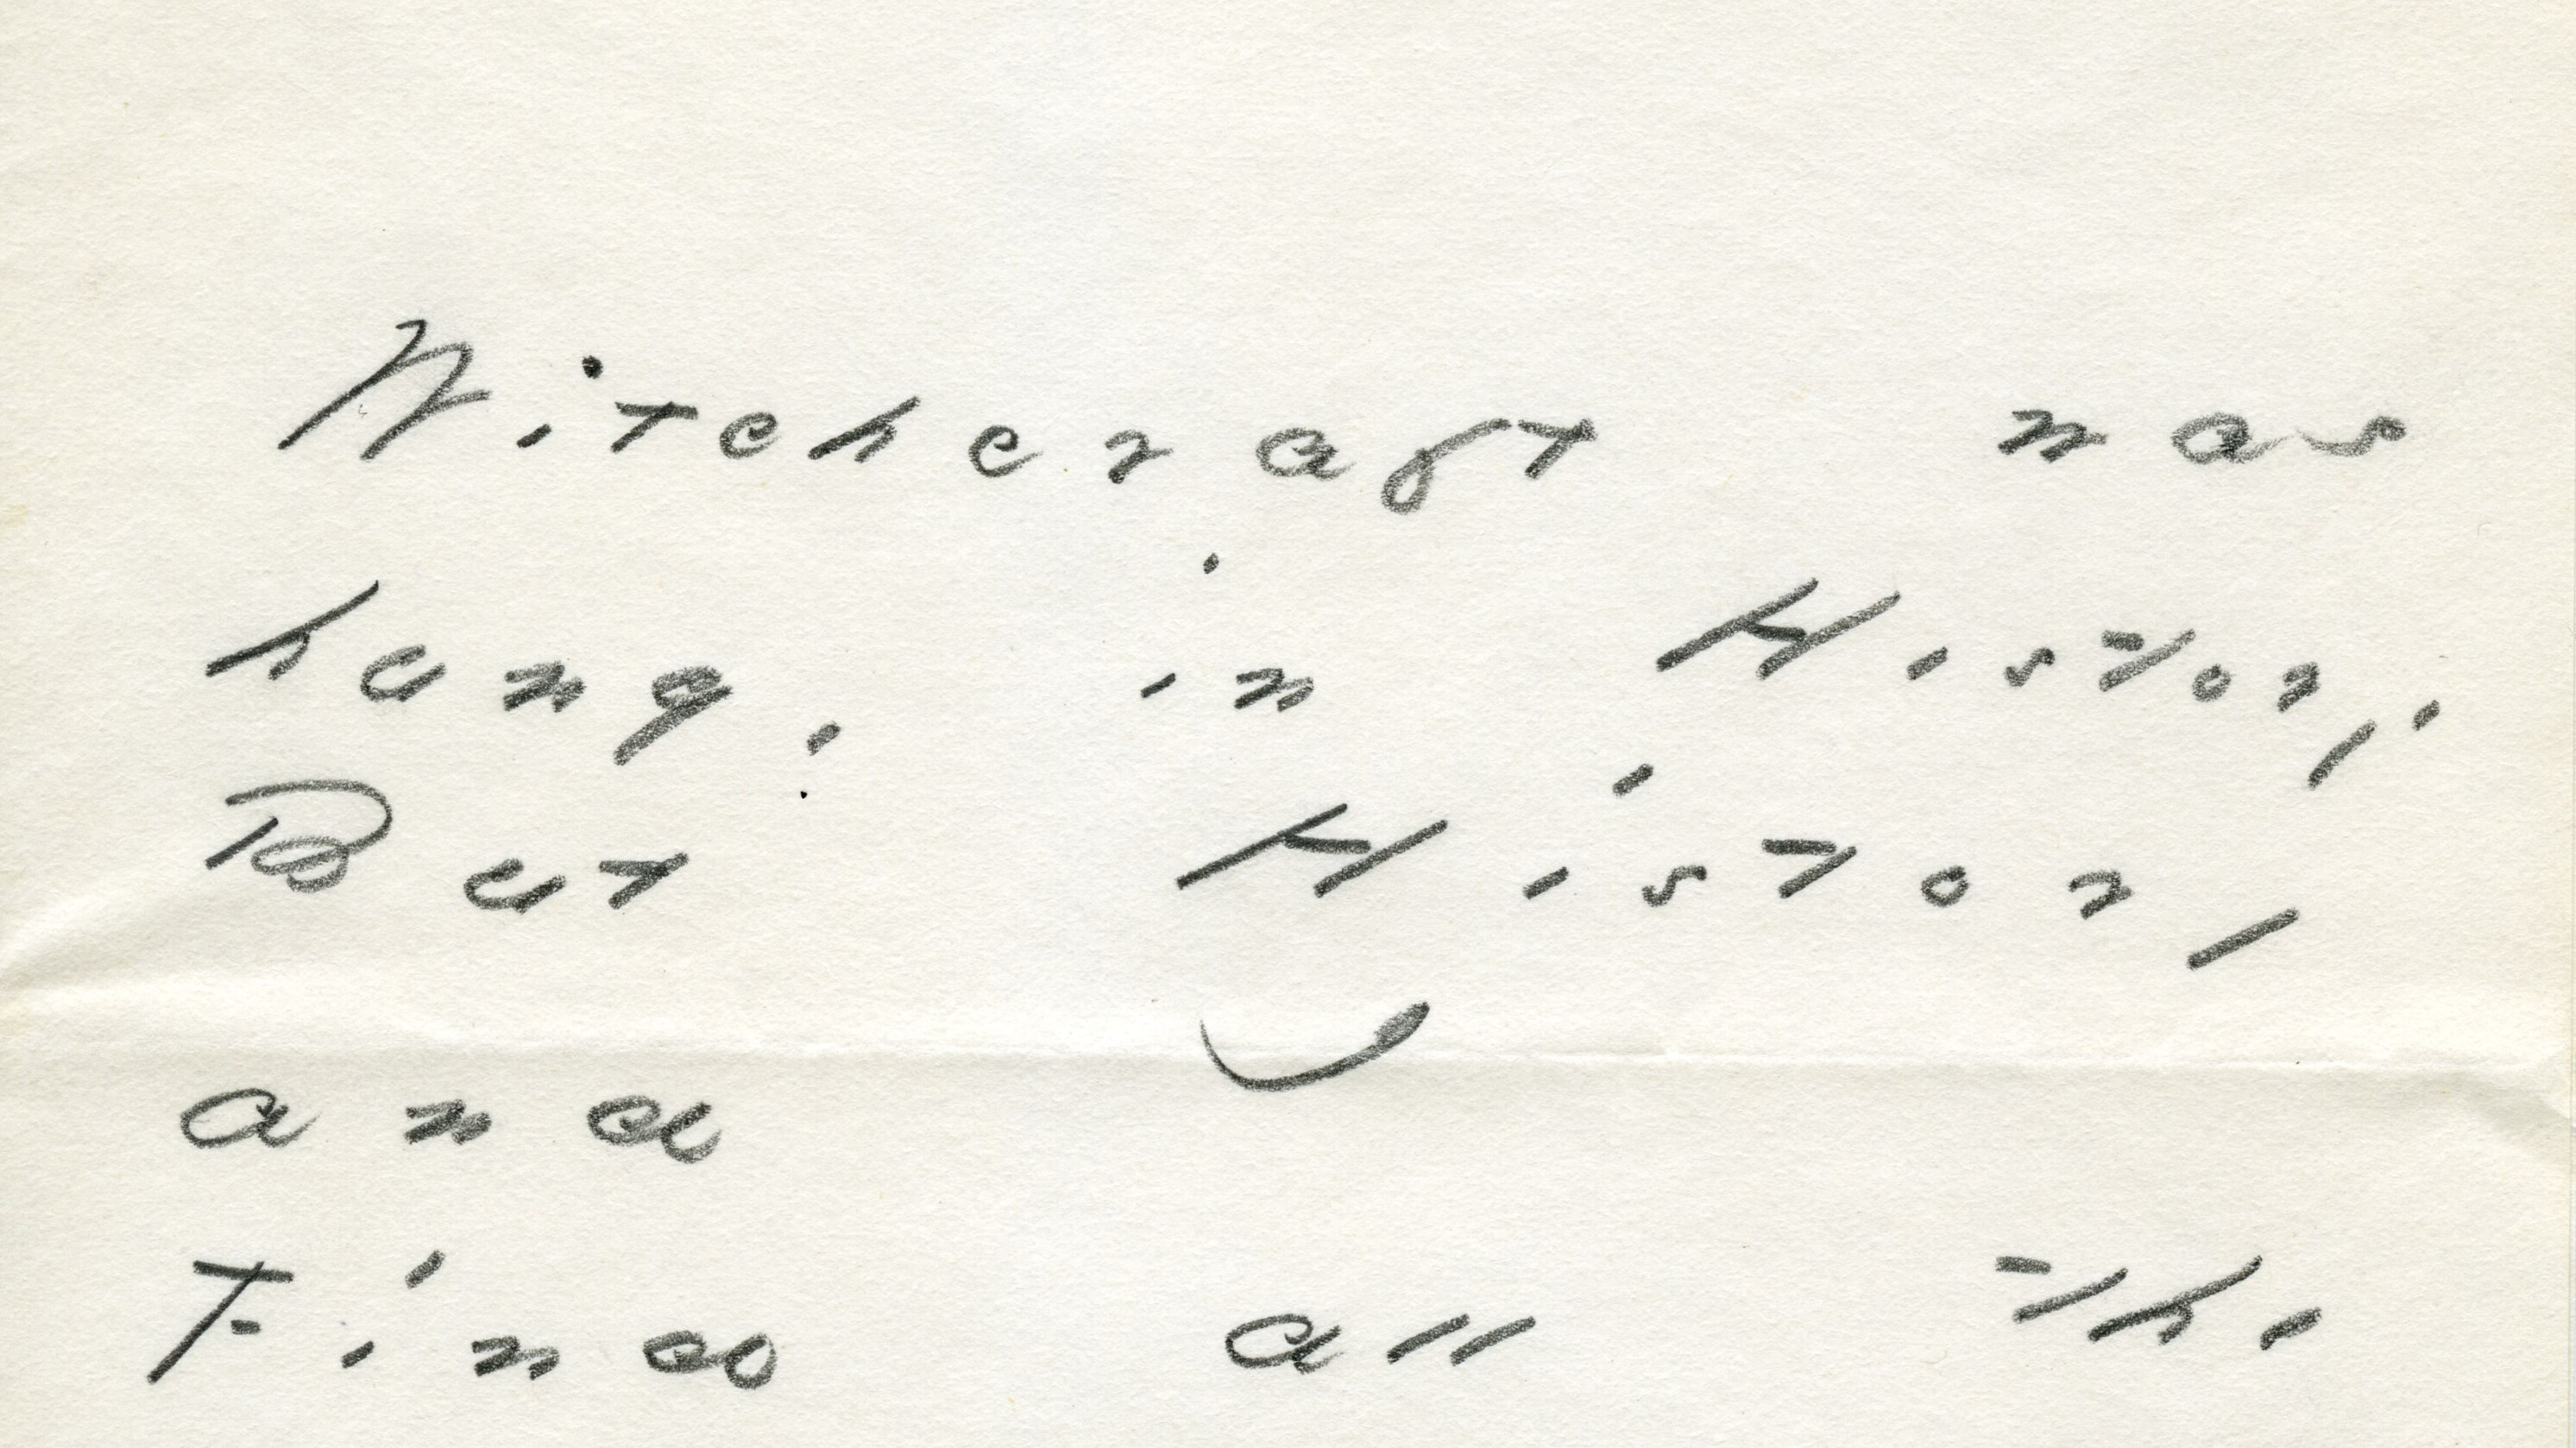 Witchcraft was
hung, in History,
But History
and I
Find all the